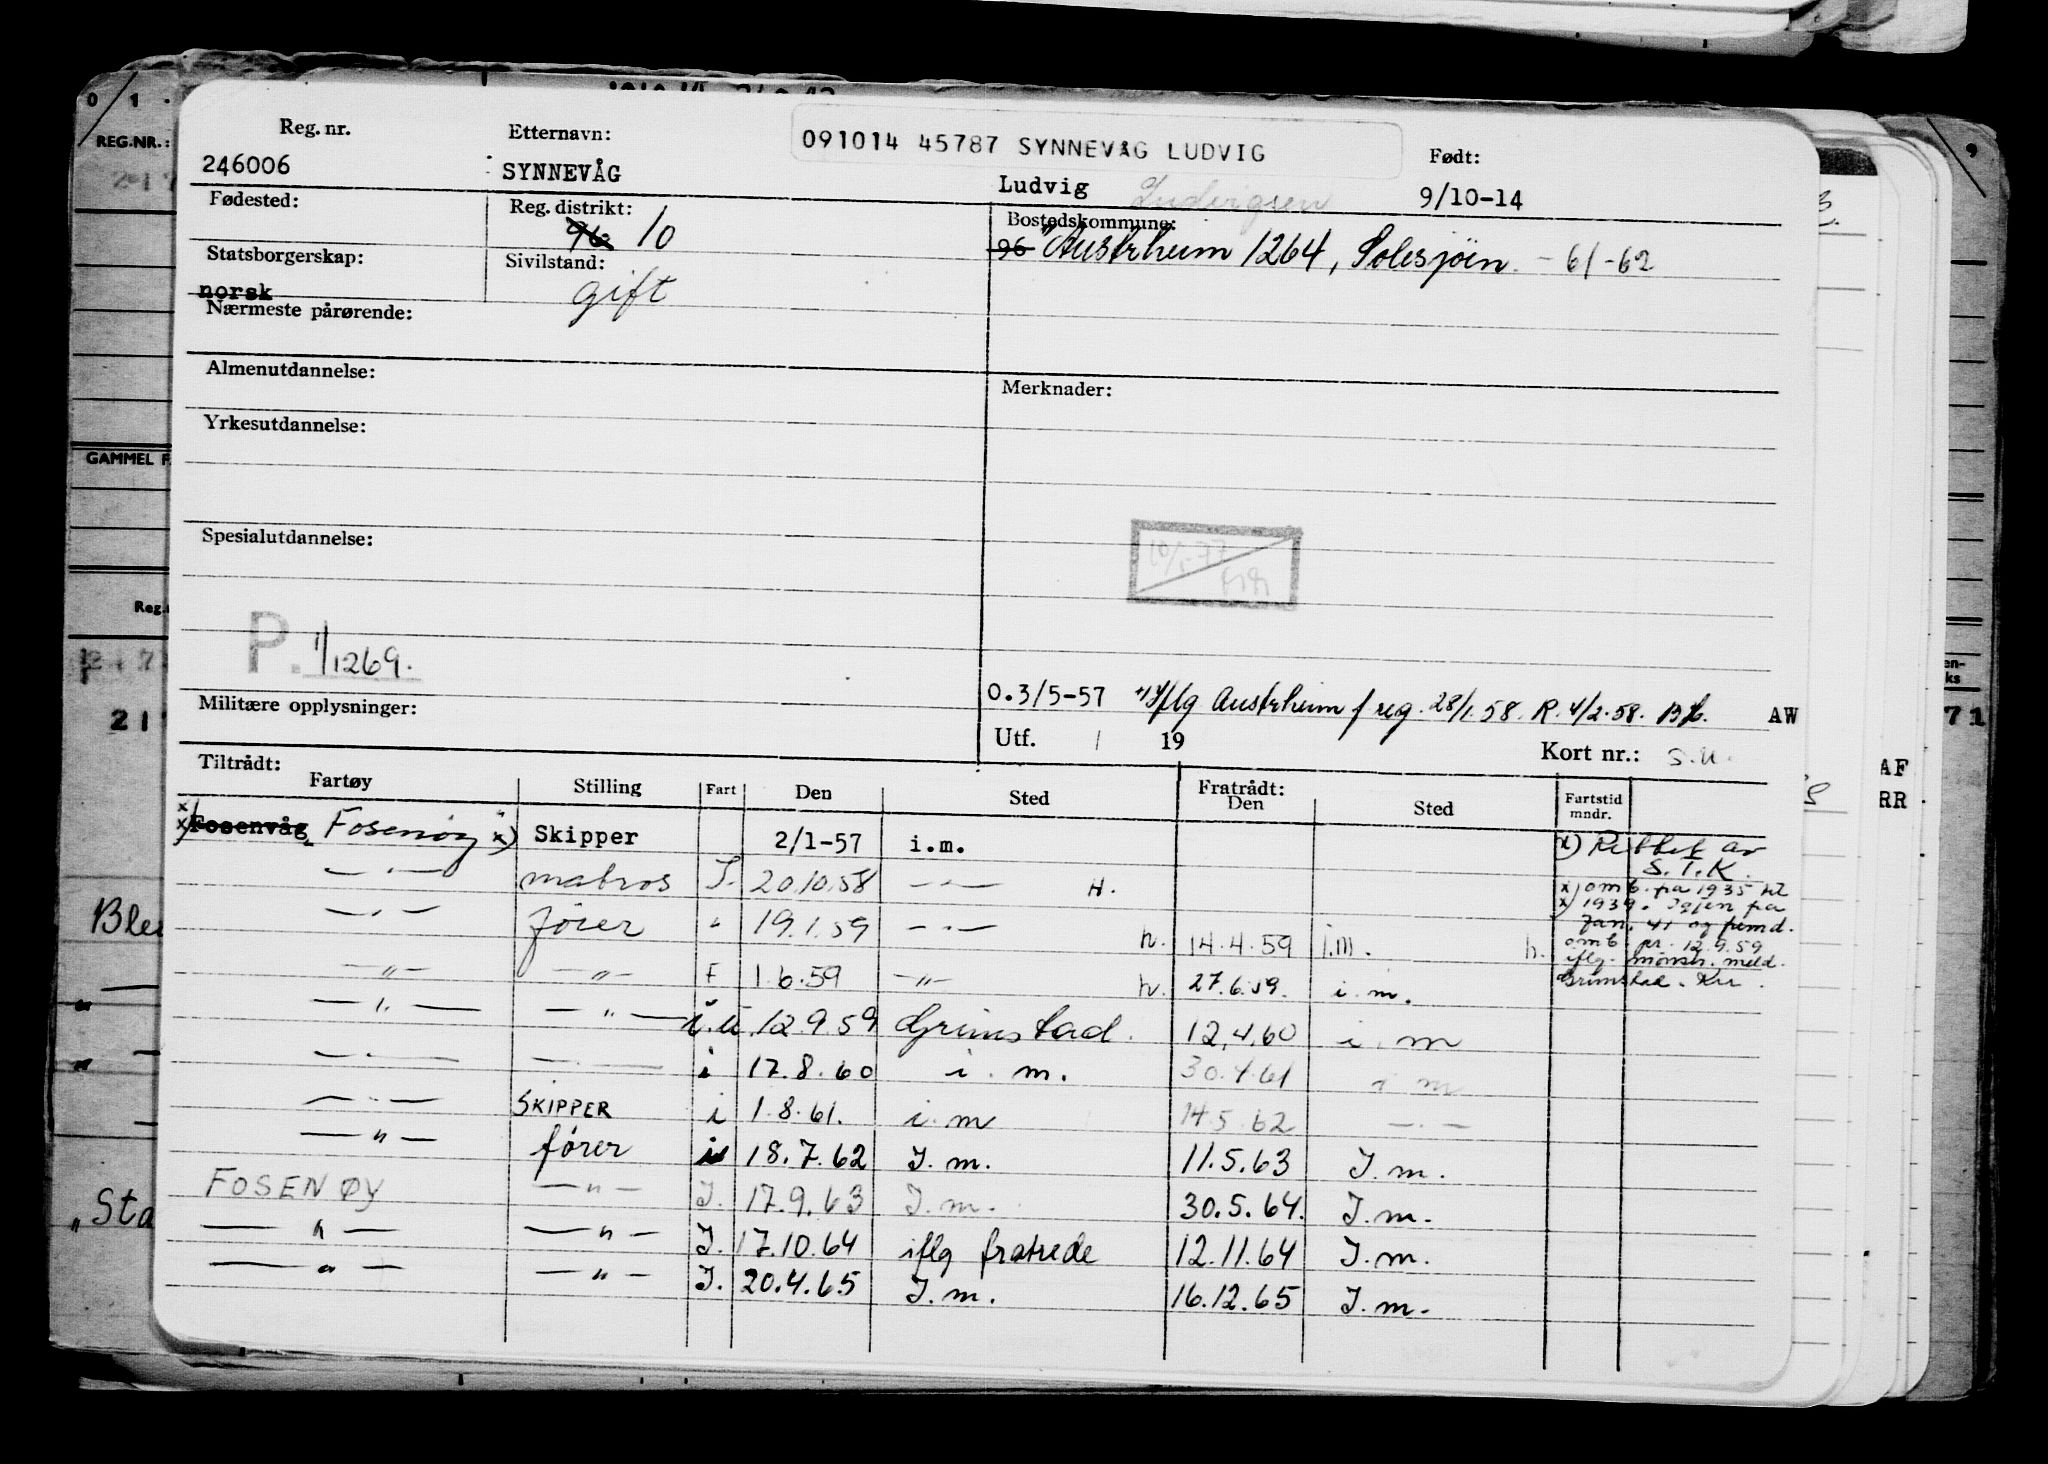 0 / 1 .
REG.NR.:
Reg. nr.
Etternavn:
091014 45787 SYNNEVÅG LUDVIG
Født:
246006
SYNNEVÅG
Ludvig Ludvigsen
9/10-14
Fødested:
Reg. distrikt:
Bostedskommune:
96 10
96 Austrheim 1264, Solesjöen - 61-62
Statsborgerskap:
Sivilstand:
norsk
gift
Nærmeste pårørende:
Almenutdannelse:
Merknader:
Yrkesutdannelse:
GAMMEL F
Spesialutdannelse:
Reg.
P. 1/1269.
0.3/5-57 iflg Austrheim f reg. 28/1.58. R. 4/2.58. AW
Militære opplysninger:
Utf. / 19
Kort nr.: S.U.
21
71
Tiltrådt:
Fratrådt:
Fartøy Stilling Fart Den Sted Den Sted Fartstid mndr.
AF
RR
x) Fosenvåg Fosenøy x) Skipper 2/1-57 i.m. x) Rettet av
S.T.K.
— " — matros I. 20.10.58 — " — H. x) omb. på 1935 til
x) 1939. Igjen på
— " — fører " 19.1.59 — " — h. 14.4.59 i.m. h. Jan. 41 og fremd.
omb. pr. 12.9.59
iflg. mønstr. meld.
— " — — " — F 1.6.59 — " — h. 27.6.59. i.m. Grimstad.
— " — — " — i.u. 12.9.59 Grimstad. 12.4.60 i.m
— " — — " — i 17.8.60 i.m. 30.4.61 i m
— " — SKIPPER i 1.8.61. i.m 14.5.62 — " —
— " — fører i 18.7.62 I.m. 11.5.63 I.m.
FOSENØY — " — I. 17.9.63 I.m. 30.5.64. I.m.
— " — — " — I. 17.10.64 iflg fratrede 12.11.64 I.m.
— " — — " — I. 20.4.65 I.m. 16.12.65 I.m.
Ble
"Sta